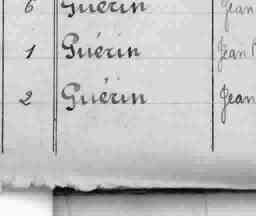 6 Guérin Jean
1 Guérin Jean
2 Guérin Jean